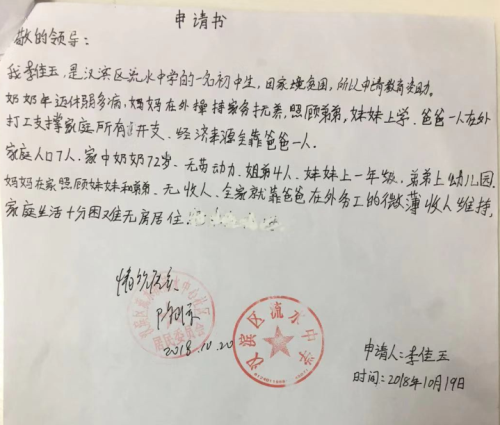 申请书
敬的领导：
我李佳玉，是汉滨区流水中学的一名初中生，因家境贫困，所以申请教育资助。
奶奶年迈体弱多病，妈妈在外操持家务抚养、照顾弟弟，妹妹上学、爸爸一人在外
打工支撑家庭所有开支、经济来源全靠爸爸一人.
家庭人口7人、家中奶奶72岁、无劳动力、姐弟4人、妹妹上一年级，弟弟上幼儿园.
妈妈在家照顾妹妹和弟弟、无收入、全家就靠爸爸在外务工的微薄收入维持，
家庭生活十分困难无房居住.
情况属实
2018.10.20
汉滨区流水中学
居民委员会
申请人：李佳玉
时间：2018年10月19日